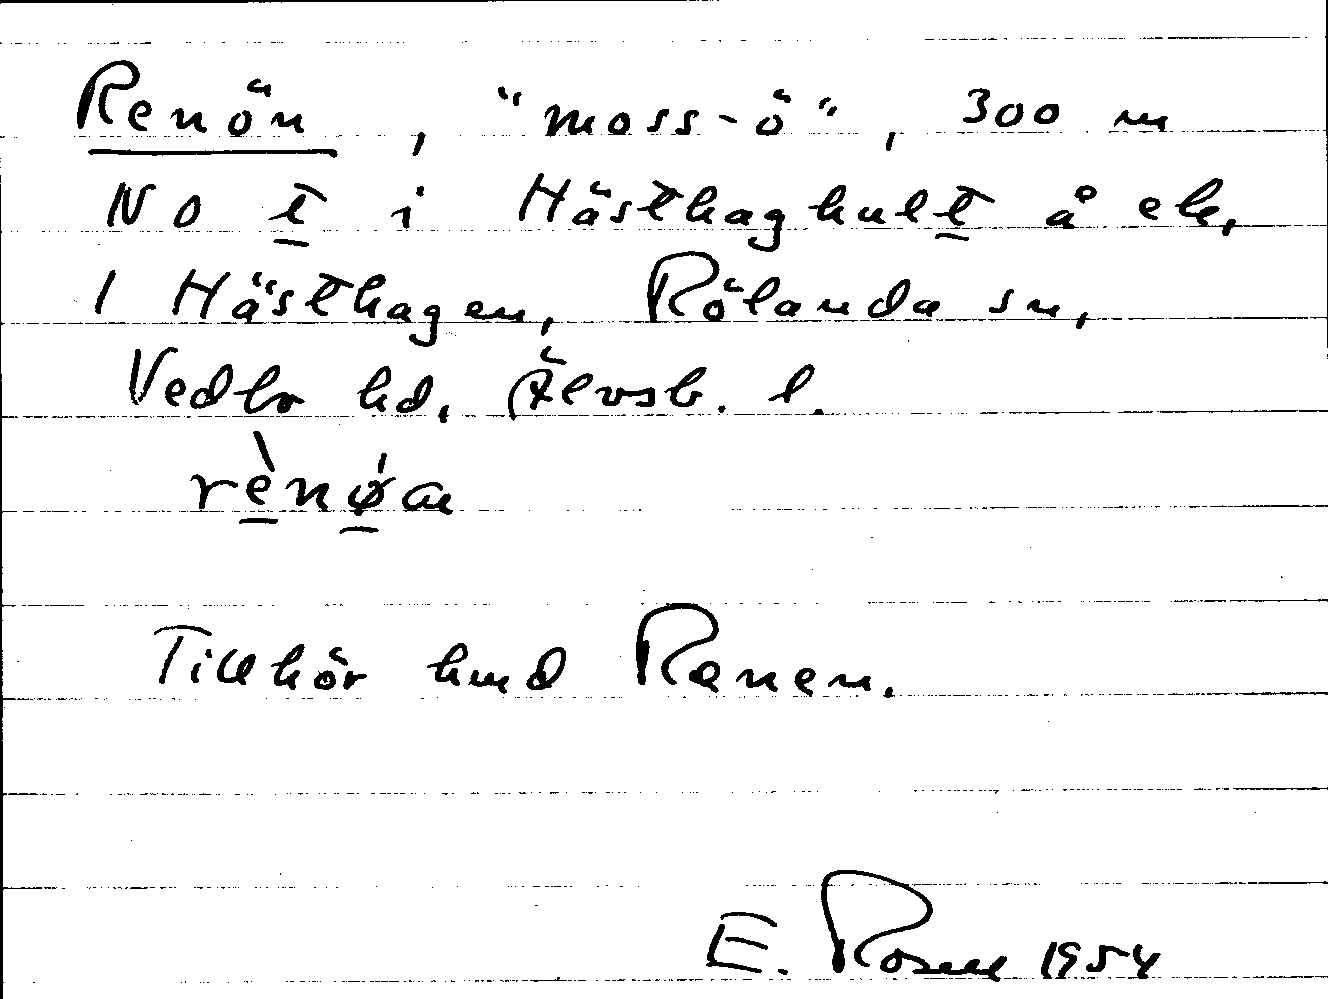 Renön, "moss-ö", 300 m
NO t i Hästhaghult å ek,
1 Hästhagen, Rölanda sn,
Vedbo hd, Älvsb. l.
rènǿn
Tillhör hmd Renen.
E. Rosell 1954